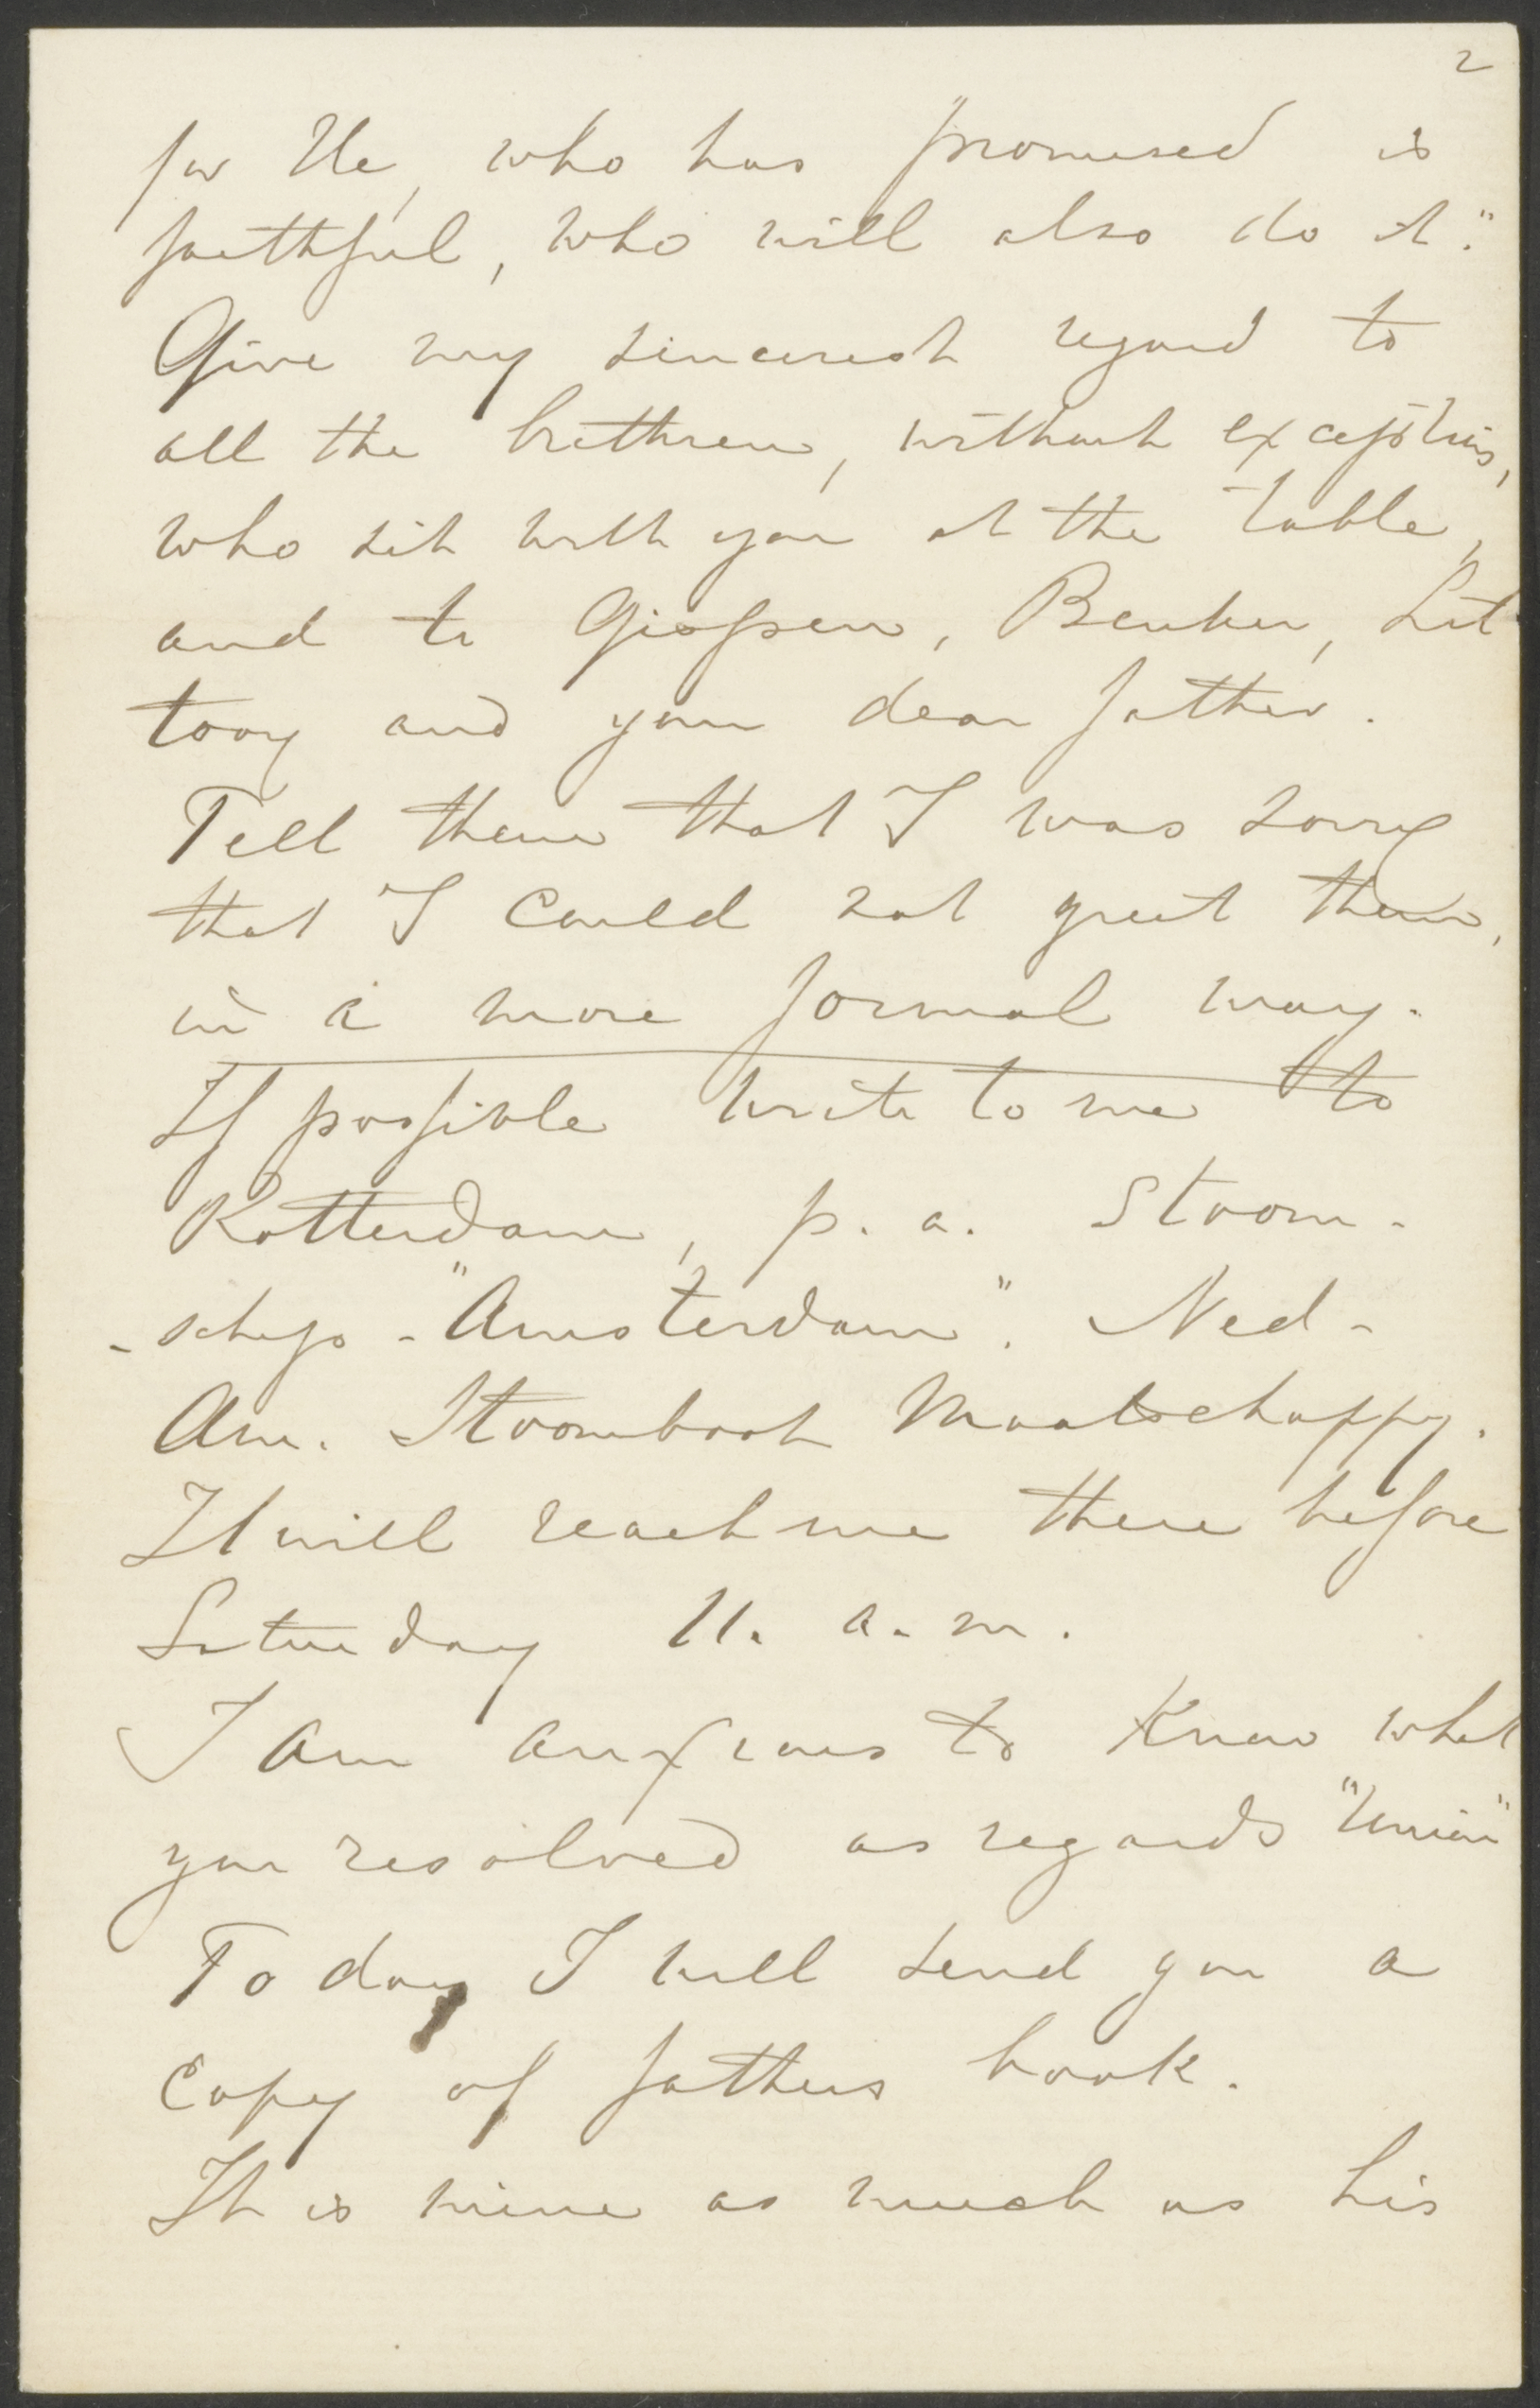 2
for He, who has promised is
faithful, who will also do it."
Give my sincerest regard to
all the brethren, without exception,
who sit with you at the table,
and to Gispen, Beuker, Lit
tooy and your dear father.
Tell them that I was sorry
that I could not greet them,
in a more formal way.
If possible write to me to
Rotterdam, p. a. Stoom-
-schip - "Amsterdam". Ned-
Am. Stoomboot Maatschappy.
It will reach me there before
Saturday 11. a.m.
I am anxious to know what
you resolved as regards "Union"
To day I will send you a
copy of fathers book.
It is mine as much as his